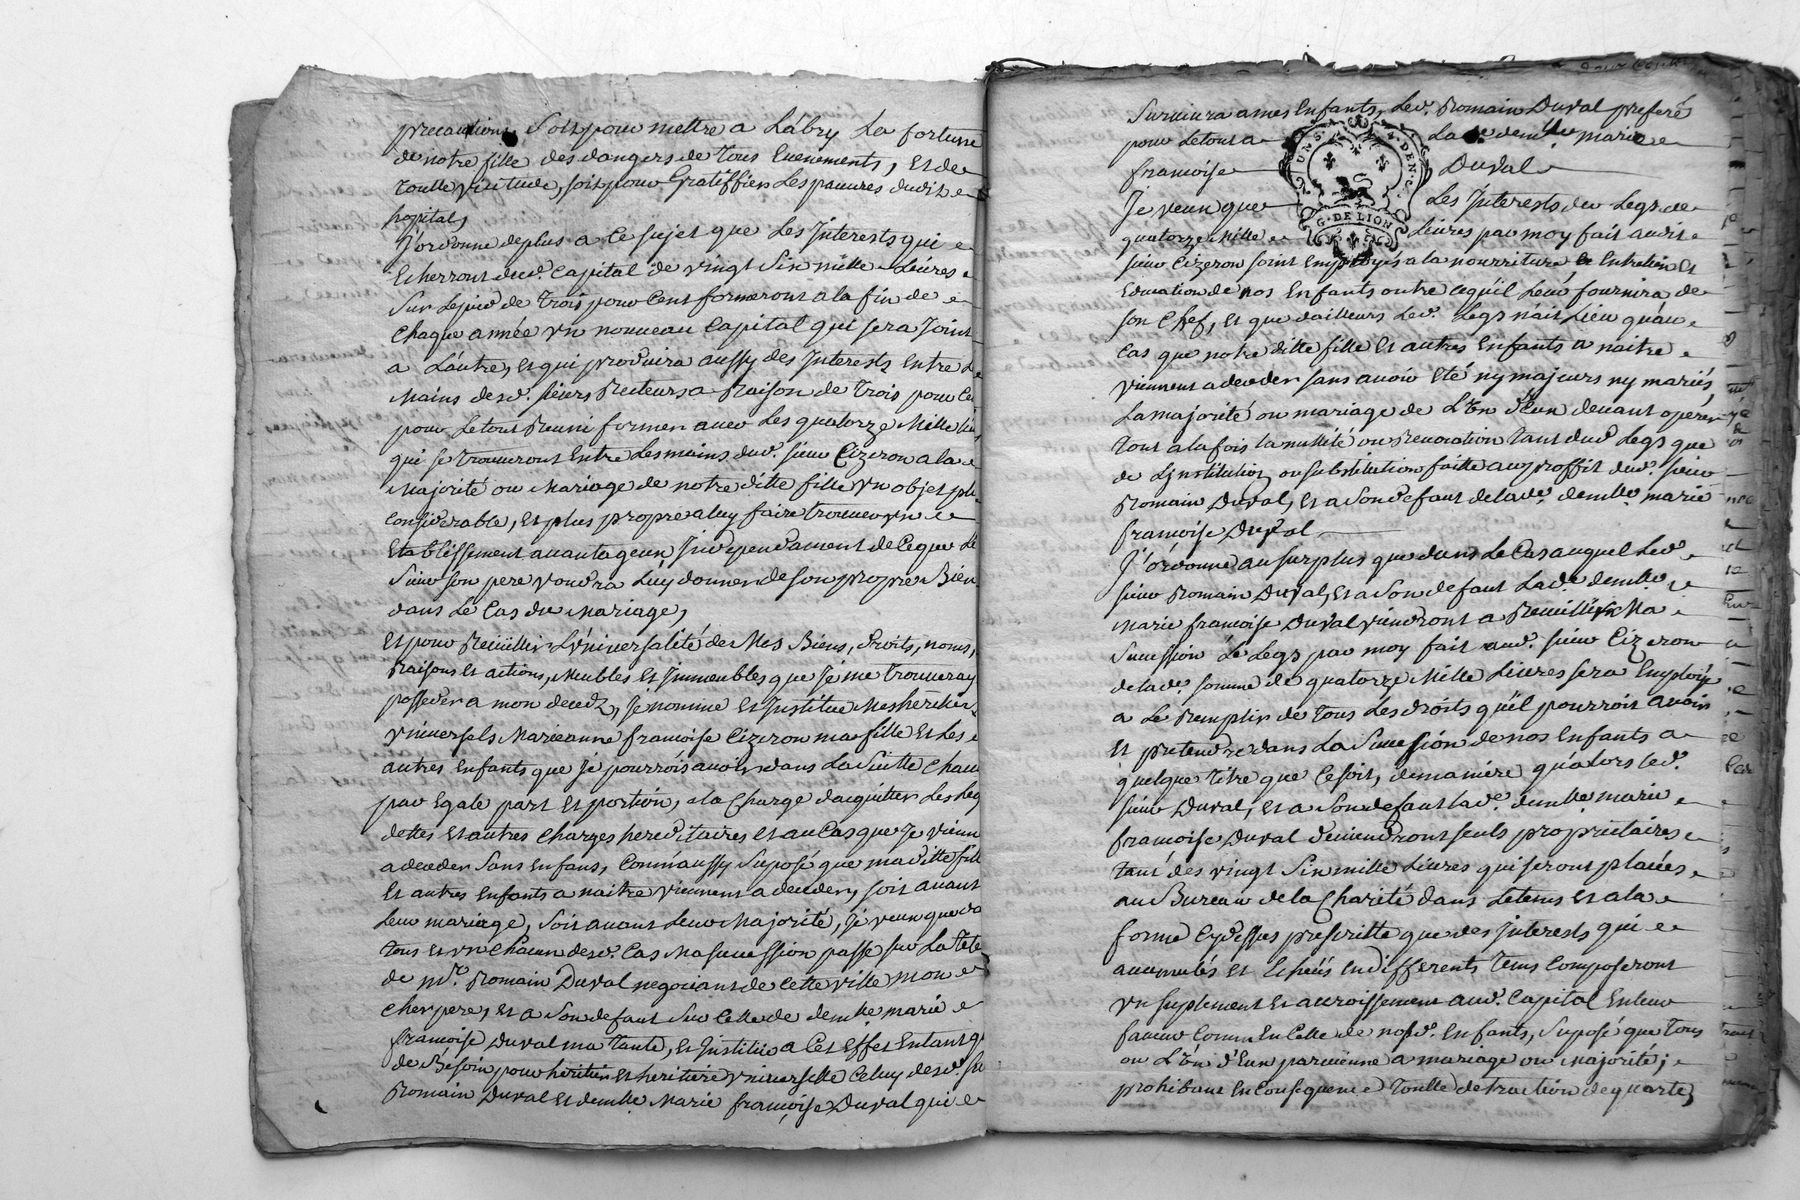 precautions soit pour mettre a L'abry La fortune
de notre fille des dangers de tous Evenements, et de
toutte visitude, soit pour Gratiffier Les pauvres dudit
hopital,
J'ordonne de plus a ce sujet que Les Interests qui
Echerront dud. Capital de vingt Six mille Livres
Sur Le pied de trois pour Cent formeront a la fin de
Chaque année un nouveau Capital qui sera Joint
a L'autre, et qui produira aussy des Interests Entre Le
Mains desd. sieurs Recteurs a Raison de trois pour Ce
pour Le tout Reuni former avec Les quatorze Mille Liv
qui se trouveront Entre Les mains dud. sieur Cizeron a la
Majorité ou Mariage de notre ditte fille un objet plu
Considerable, et plus propre a luy faire trouver un
Etablissement avantageux Independament de Ce que Le
Sieur son pere voudra Luy donner de son propre Bien
dans Le Cas du Mariage,
Et pour Reüillir L'universalité de Mes Biens, droits, noms,
Raisons et actions, Meubles et Immeubles que Je me trouveray
posseder a mon decedz, Je nomme et Institue Mes heritiers
universels Marieanne françoise Cizeron ma fille et Les
autres Enfants que Je pourrois avoir dans La Suitte Chacu
par Egale part et portion, a la Charge d'acquitter Les Leg
dettes et autres Charges hereditaires et au Cas que Je vienn
a deceder Sans Enfans, Comm aussy Suposé que ma ditte fill
Et autres Enfants a naitre viennent a deceder, soit avant
Leur mariage, Soit avant Leur Majorité, Je veux que da
tous et un Chacun desd. Cas Ma succession passe sur La Tete
de Mr. Romain Duval negociant de Cette ville mon
Cher pere, et a Son defaut Sur Celle de demlle marie
françoise Duval ma tante, et Institue a Cet Effet Entant q
de Besoin pour heritier et heritiere universelle Celuy desd. Sr
Romain Duval et demlle Marie françoise Duval qui
Survivra a mes Enfants, Led. Romain Duval preferé
pour Le tout a La de demlle marie
françoise Duval
Je veux que Les Interests du Legs de
quatorze Mille Livres par moy fait audit
sieur Cizeron soint Employés a la nourriture, Entretien et
Education de nos Enfants outre ce qu'il Leur fournira de
son Chef, et que d'ailleurs Led. Legs n'ait Lieu qu'au
Cas que notre ditte fille et autres Enfants a naitre
viennent a deceder sans avoir Eté ny majeurs ny mariés,
La majorité ou mariage de L'un d'eux devant operer
tout a la fois la nullité ou Revocation tant dud. Legs que
de L'institution ou substitution faitte au proffit dud. sieur
Romain Duval, et a Son defaut de lad. demlle marie
françoise Duval
J'ordonne au surplus que dans Le Cas auquel Led.
sieur Romain Duval, et a Son defaut Lade. demlle
Marie françoise Duval viendront a Recüillir Ma
Succession Le Legs par moy fait aud. sieur Cizeron
de lade. somme de quatorze Mille Livres sera Employé
a Le Remplir de tous Les droits qu'il pourroit avoir
et pretendre dans La Succession de nos Enfants a
quelque titre que Ce soit, de maniere qu'alors Led.
sieur Duval, et a Son defaut Lad.e demlle marie
françoise Duval deviendront seuls proprietaires
tant des vingt Six mille Livres qui seront placées
au Bureau de la Charité dans Le tems et a la
forme Cydessus prescritte que des Interests qui
accumulés et Echüés En differents tems Composeront
un suplement et accroissement aud. Capital En leur
faveur Comm En Celle de nosd. Enfants, Suposé que tous
ou L'un d'Eux parvienne a mariage ou Majorité;
prohibant En Consequence toutte detraction de quarte,
G. DE LION